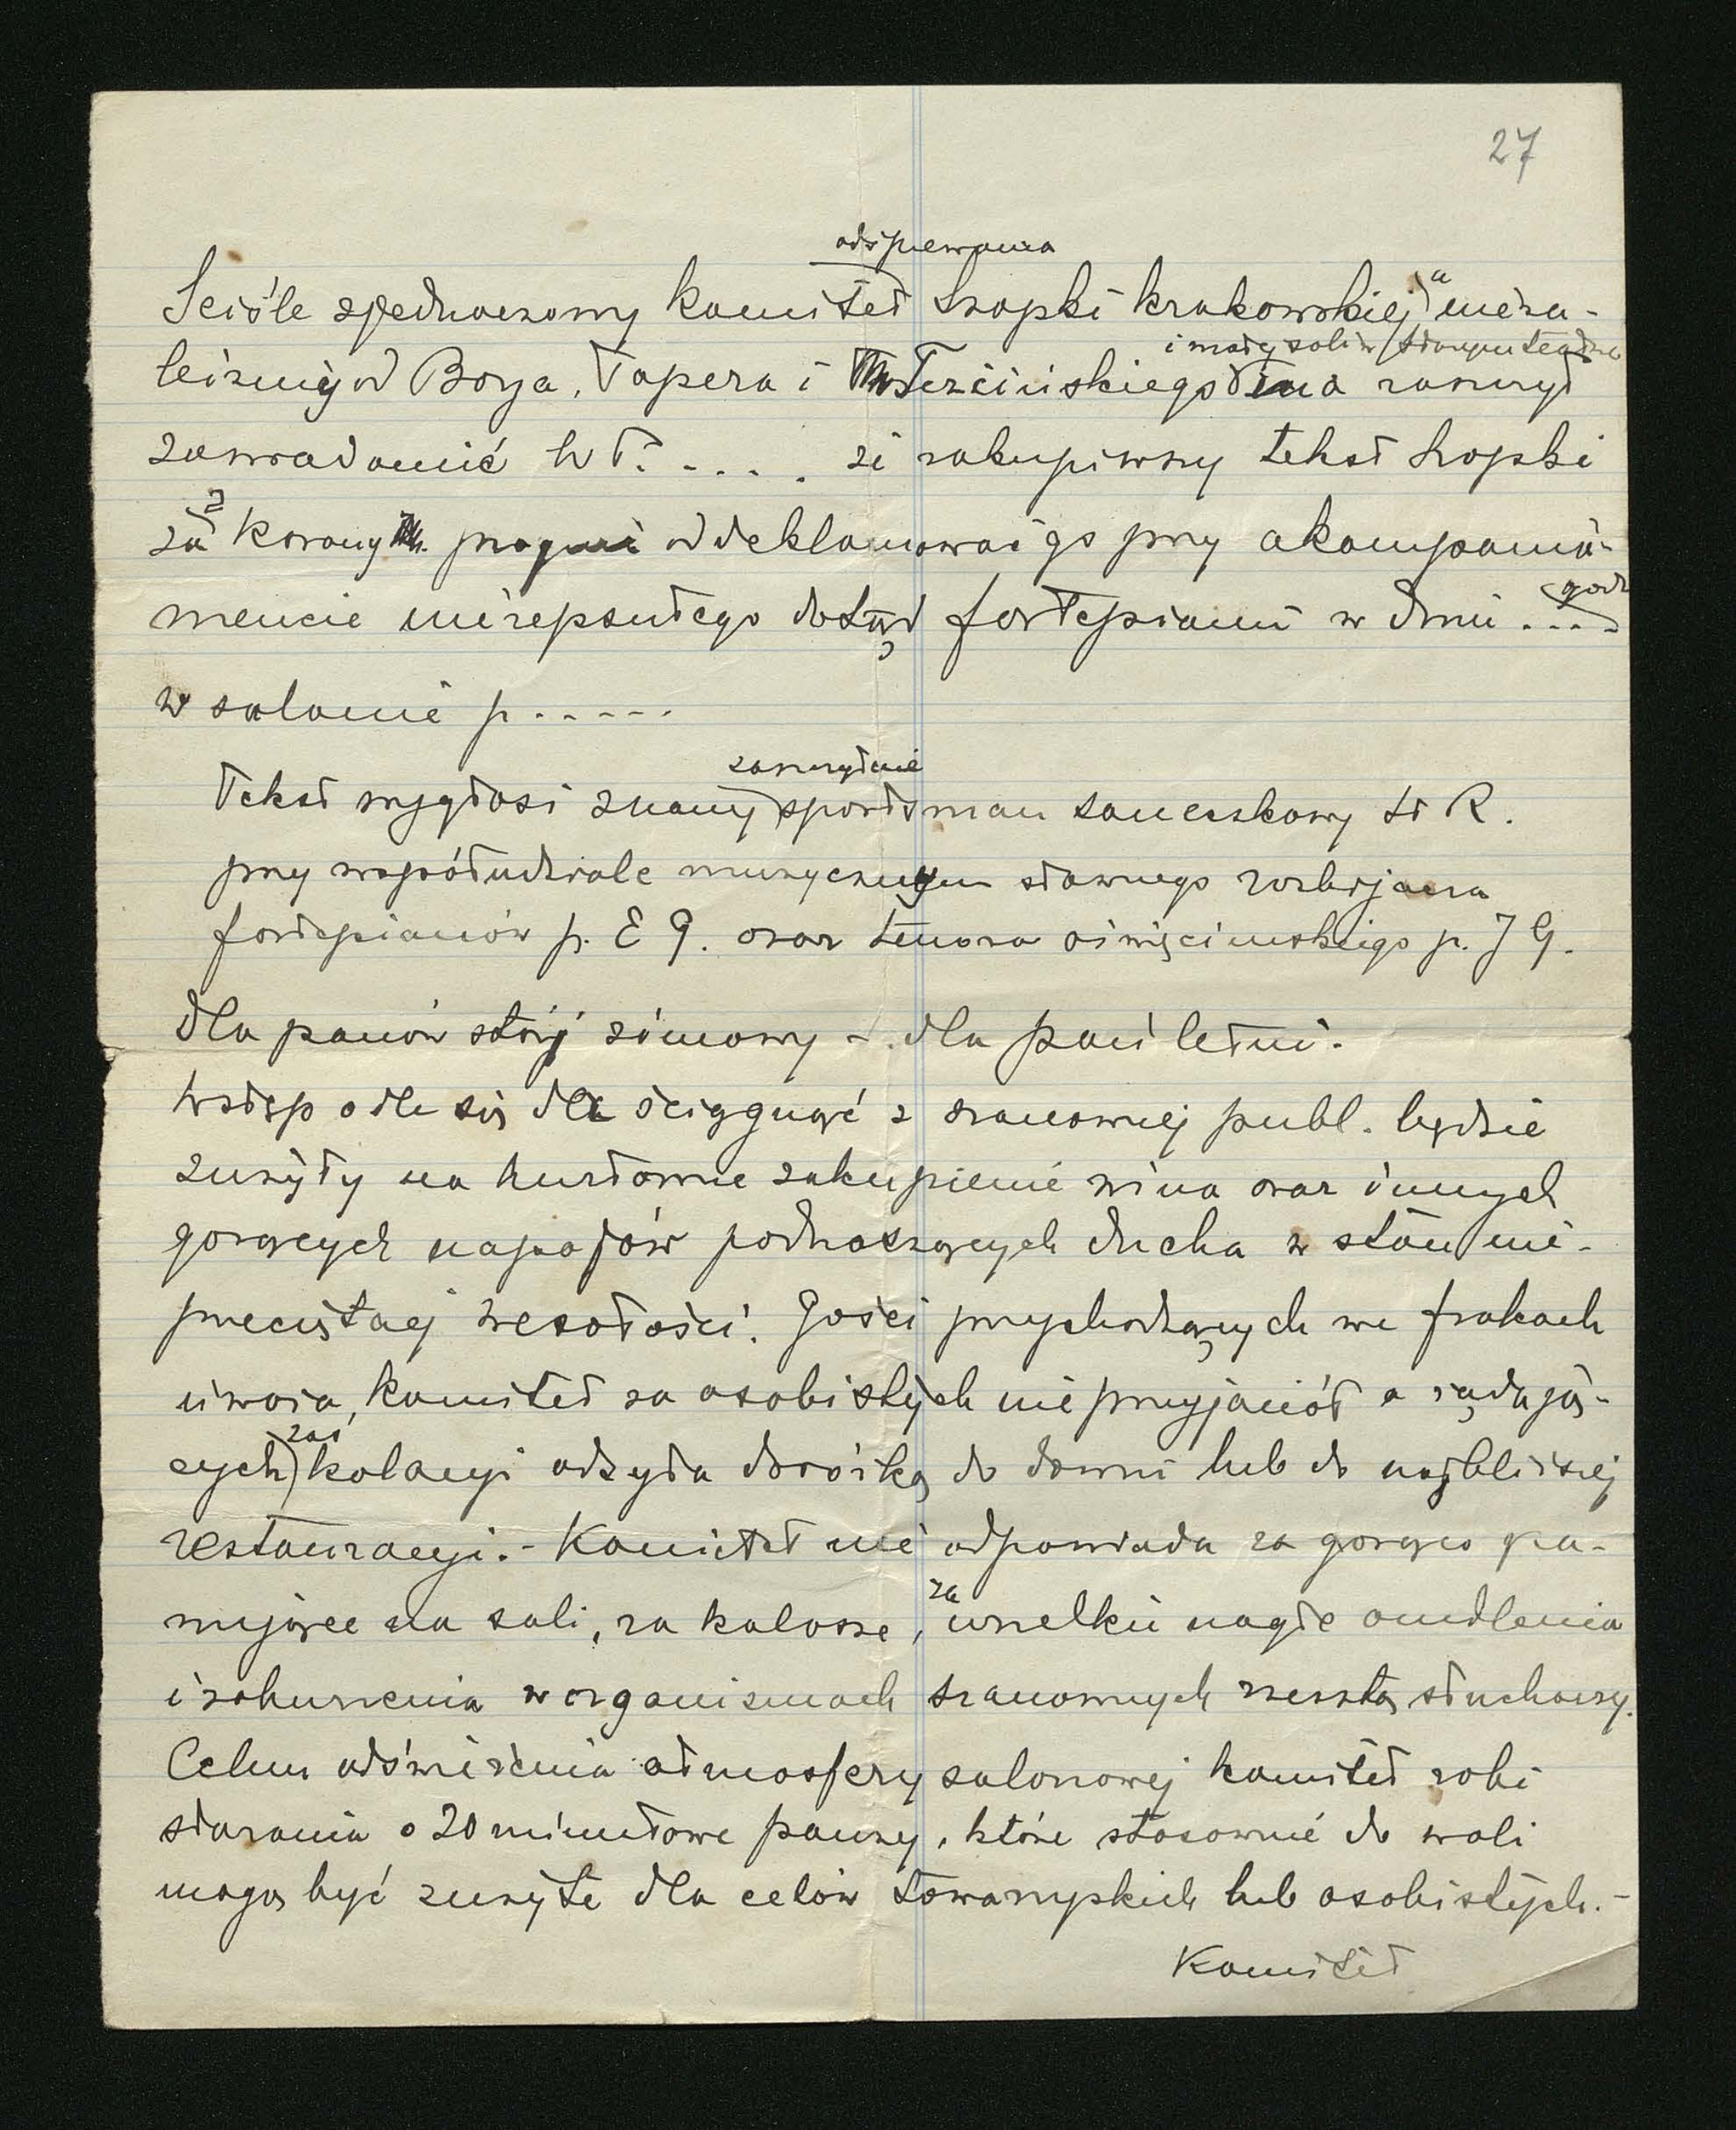 27
odśpiewania
Ściśle zjednoczony komitet szopki krakowskiej" nieza-
i małej sali w starym teatrze
leżnie od Boya, Tapera i Trzcińskiego ma zaszczyt
zawiadomić W P. . . . . że zakupiwszy tekst szopki
za 2 korony pragnie oddeklamować go przy akompania-
mencie niezepsutego dotąd fortepianu w dniu . . . . godz
w salonie p. . . . . .
zaszczytnie
Tekst wygłosi znany sportsman saneczkowy St R.
przy współudziale muzycznym sławnego rozbijacza
fortepianów p. E G. oraz tenora oświęcimskiego p. J G.
Dla panów strój zimowy – dla pań letni.
Wstęp o ile się da ściągnąć z szanownej publ. będzie
zużyty na hurtowne zakupienie wina oraz innych
gorących napojów podnoszących ducha w stan nie-
przeciętnej wesołości. Gości przychodzących we frakach
uważa komitet za osobistych nieprzyjaciół a żądają-
zaś
cych kolacyi odsyła dorożką do domu lub do najbliższej
restauracyi. – Komitet nie odpowiada za gorąco pa-
za
nujące na sali, za kalosze, wszelkie nagłe omdlenia
i zaburzenia w organizmach szanownych zresztą słuchaczy.
Celem odświeżenia atmosfery salonowej komitet robi
starania o 20 minutowe pauzy, które stosownie do woli
mogą być zużyte dla celów towarzyskich lub osobistych. –
Komitet